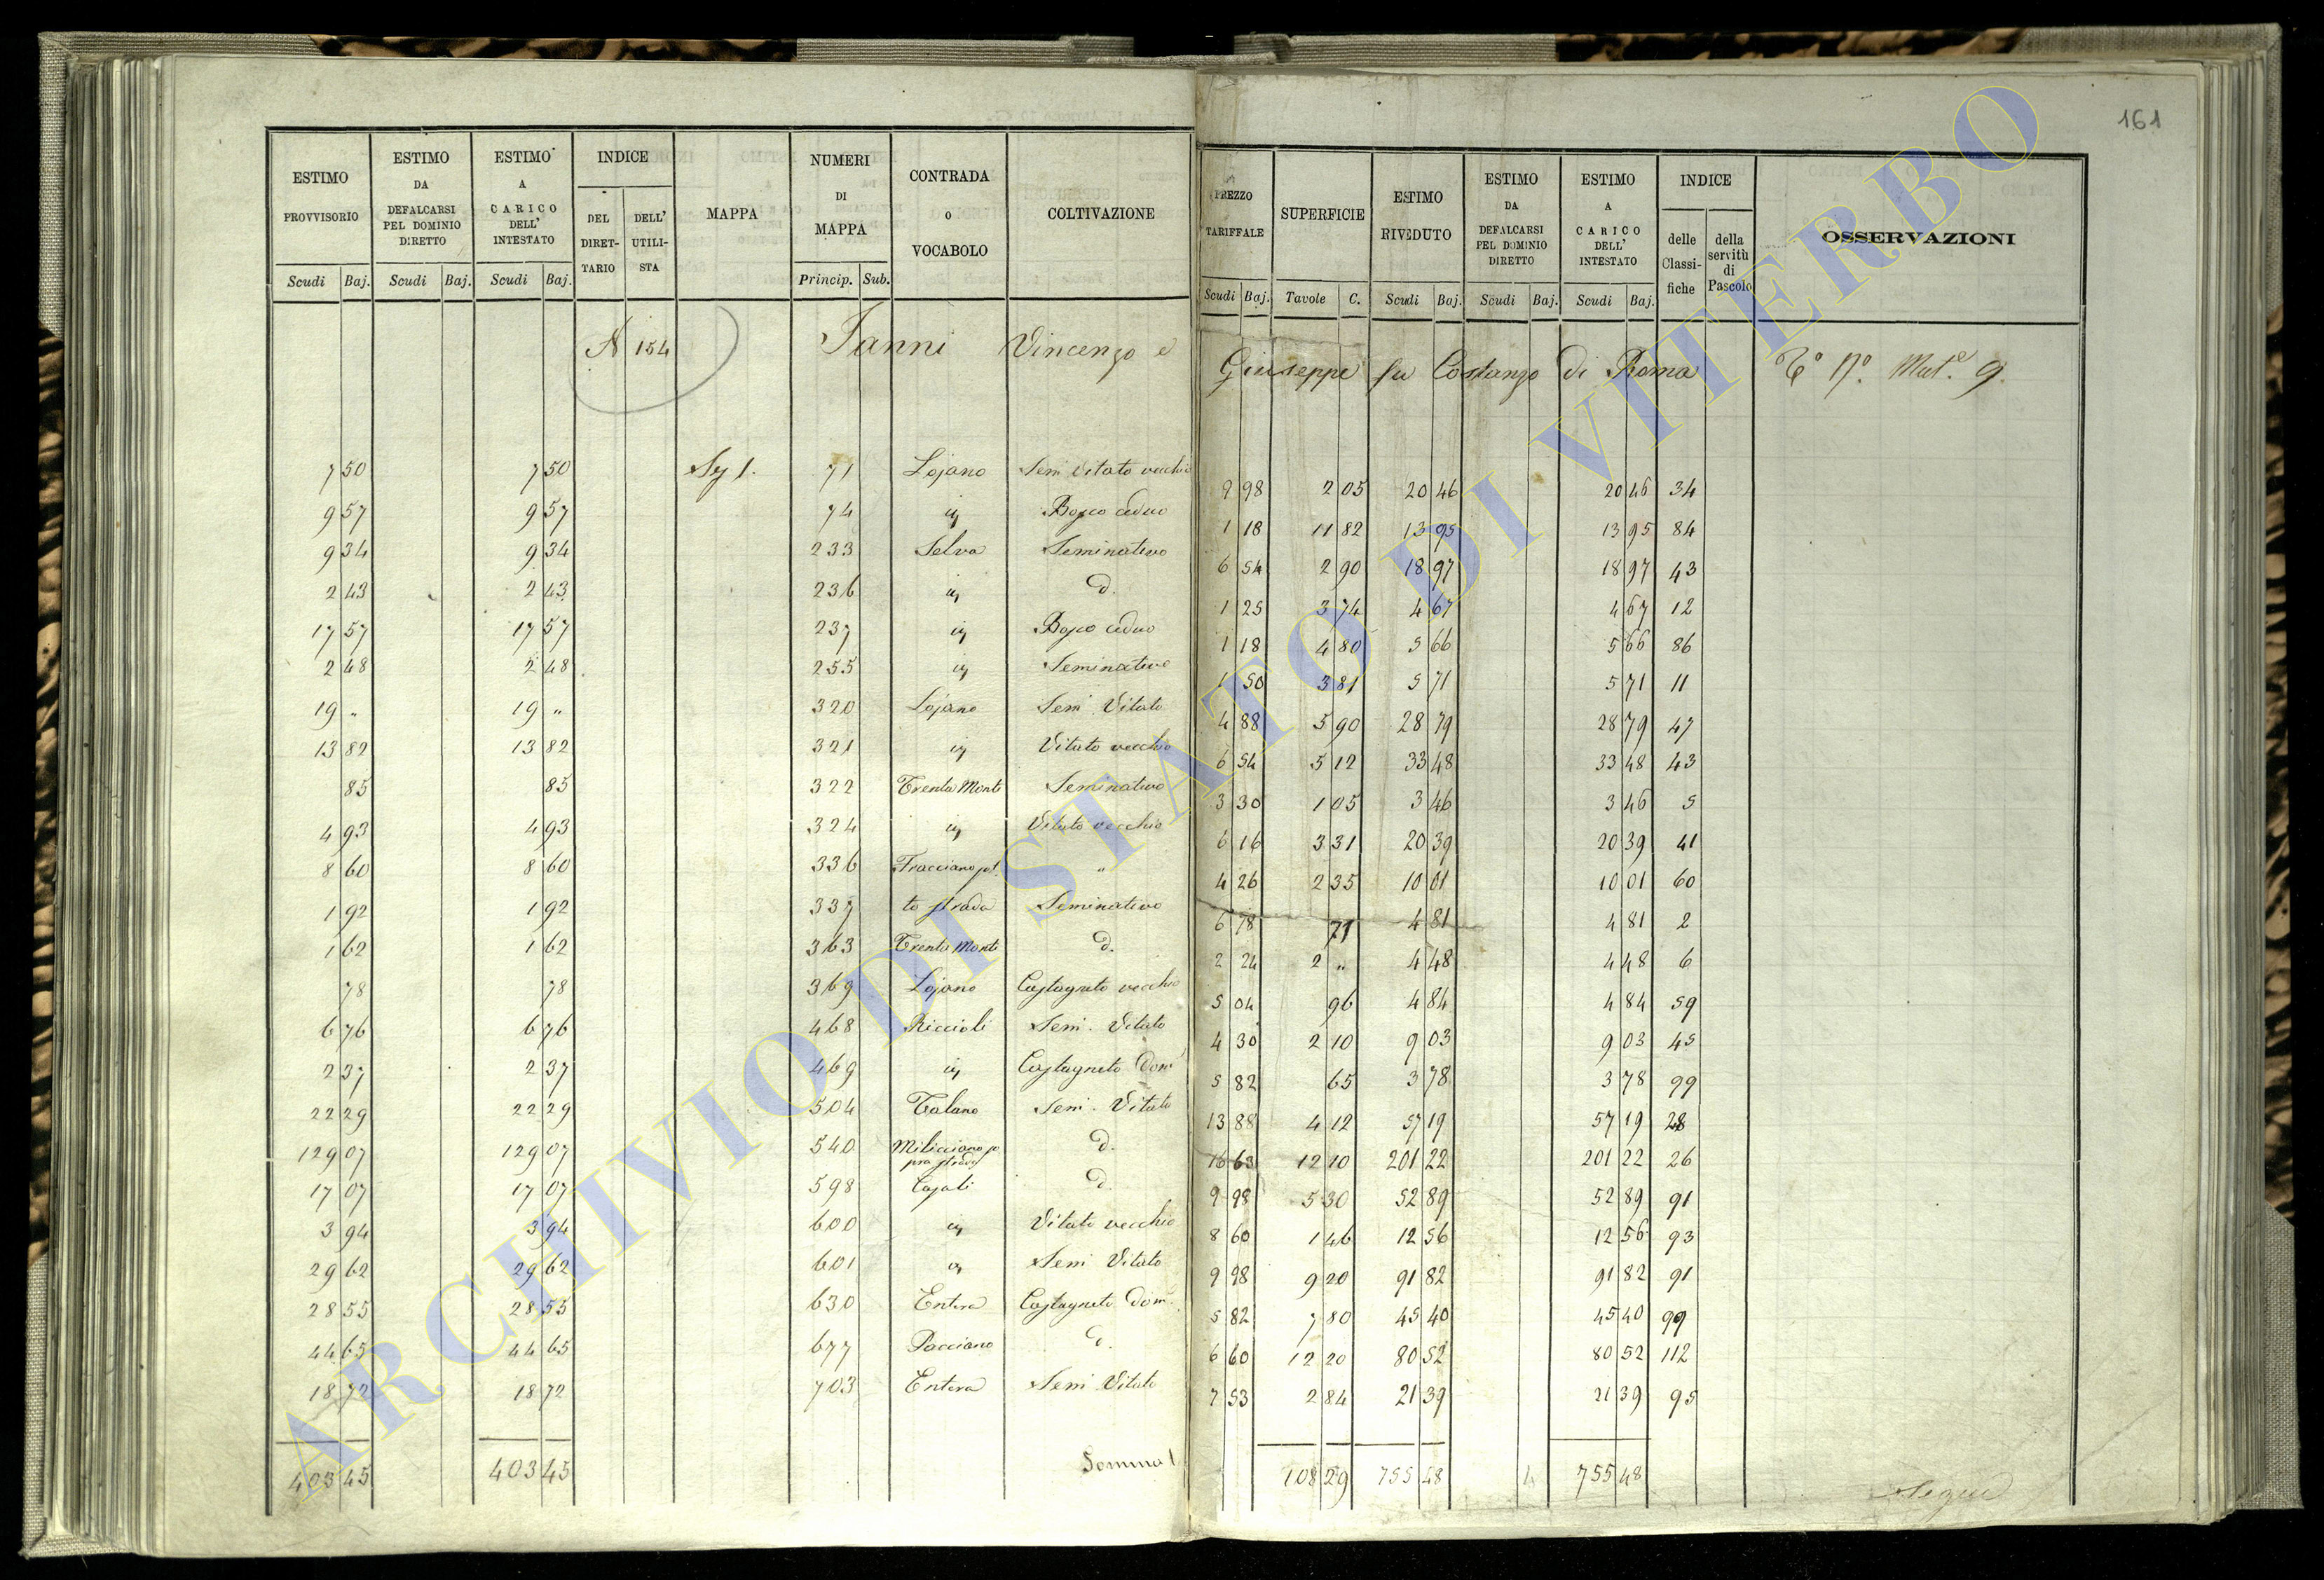 161
ESTIMO PROVVISORIO Scudi Baj. ESTIMO DA DEFALCARSI PEL DOMINIO DIRETTO Scudi Baj. ESTIMO A CARICO DELL' INTESTATO Scudi Baj. INDICE DEL DIRET- TARIO DELL' UTILI- STA MAPPA NUMERI DI MAPPA Princip. Sub. CONTRADA O VOCABOLO COLTIVAZIONE PREZZO TARIFFALE Scudi Baj. SUPERFICIE Tavole C. ESTIMO RIVEDUTO Scudi Baj. ESTIMO DA DEFALCARSI PEL DOMINIO DIRETTO Scudi Baj. ESTIMO A CARICO DELL' INTESTATO Scudi Baj. INDICE delle Classi- fiche della servitù di Pascolo OSSERVAZIONI
154 Janni Vincenzo e Giuseppe fu Costanzo di Roma Mut.e 9.
7 50 7 50 71 Lojano Sem Vitato vecchio 9 98 2 05 20 46 20 46 34
9 57 9 57 74 Bosco ceduo 1 18 11 82 13 95 13 95 84
9 34 9 34 233 Selva Seminativo 6 54 2 90 18 97 18 97 43
2 43 2 43 236 d. 1 25 3 74 4 67 4 67 12
17 57 17 57 237 Bosco ceduo 1 18 4 80 5 66 5 66 86
2 48 2 48 255 Seminativo 1 50 3 81 5 71 5 71 11
19 " 19 " 320 Lojano Sem Vitato 4 88 5 90 28 79 28 79 47
13 82 13 82 321 Vitato vecchio 6 54 5 12 33 48 33 48 43
85 85 322 Trenta Monti Seminativo 3 30 1 05 3 46 3 46 5
4 93 4 93 324 Vitato vecchio 6 16 3 31 20 39 20 39 41
8 60 8 60 336 " 4 26 2 35 10 01 10 01 60
1 92 1 92 337 to strada Seminativo 6 78 71 4 81 4 81 2
1 62 1 62 363 Trenta Monti d. 2 24 2 " 4 48 4 48 6
78 78 369 Lojano Castagneto vecchio 5 04 96 4 84 4 84 59
6 76 6 76 468 Riccioli Sem. Vitato 4 30 2 10 9 03 9 03 45
2 37 2 37 469 Castagneto Dom 5 82 65 3 78 3 78 99
22 29 22 29 504 Talano Sem. Vitato 13 88 4 12 57 19 57 19 28
129 07 129 07 540 Milicciano so pra strada d. 16 63 12 10 201 22 201 22 26
17 07 17 07 598 Casali d. 9 98 5 30 52 89 52 89 91
3 94 3 94 600 Vitato vecchio 8 60 1 46 12 56 12 56 93
29 62 29 62 601 Sem Vitato 9 98 9 20 91 82 91 82 91
28 55 28 55 630 Entera Castagneto Dom. 5 82 7 80 45 40 45 40 99
44 65 44 65 677 Pacciano d. 6 60 12 20 80 52 80 52 112
18 72 18 72 703 Entera Sem Vitato 7 53 2 84 21 39 21 39 95
403 45 403 45 Somma 108 29 755 48 755 48
Segue
ARCHIVIO DI STATO DI VITERBO